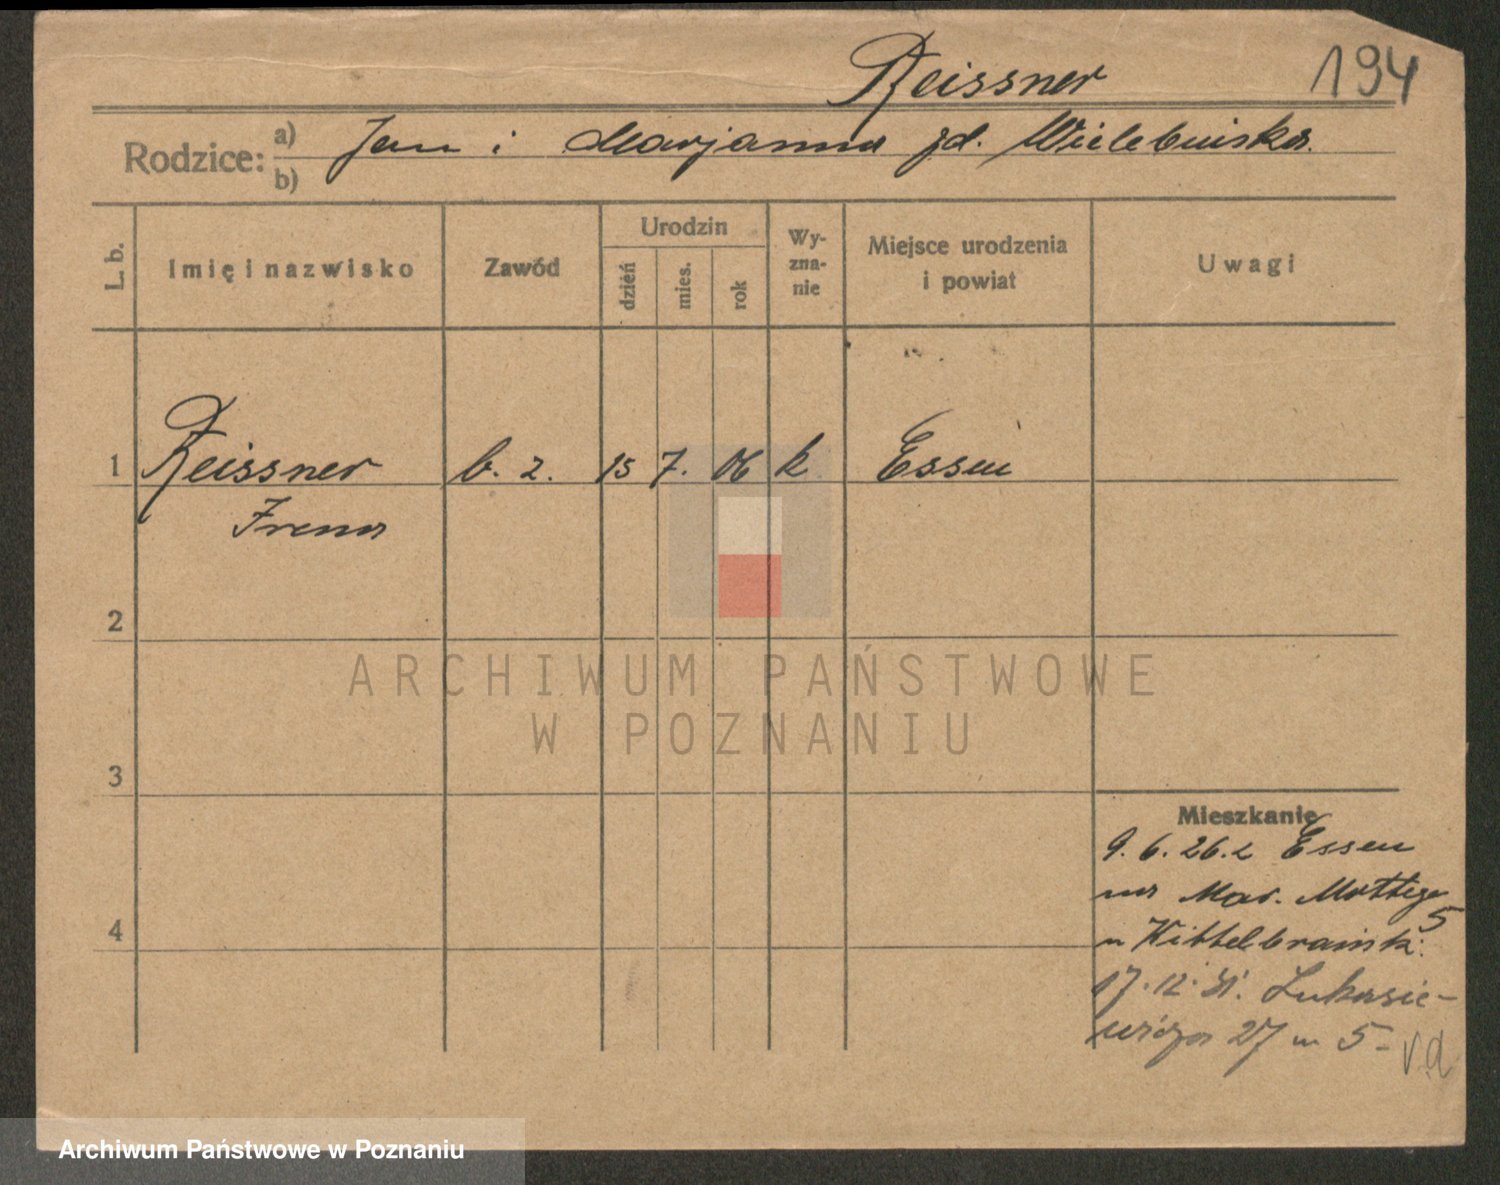 Reissner
194
Rodzice: a) Jan i Marjanna zd. Wielebinska.
b)
L. b.
Imię i nazwisko
Zawód
Urodzin
dzień
mies.
rok
Wy-
zna-
nie
Miejsce urodzenia
i powiat
Uwagi
1 Reissner b. z. 15 7. 06 k Essen
Irena
2
ARCHIWUM PAŃSTWOWE
W POZNANIU
3
4
Mieszkanie
9. 6. 26. z Essen
na Mar. 5
u
17. 12. 31. Łukasie-
wicza 27 m 5-
Archiwum Państwowe w Poznaniu